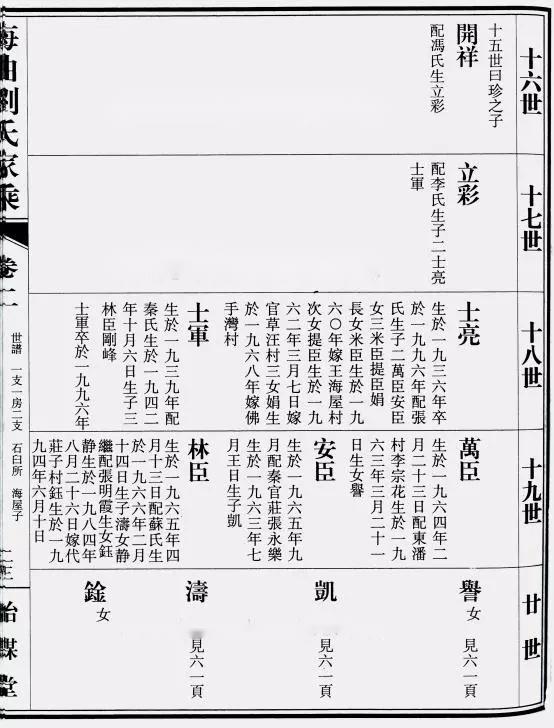 十六世
十五世曰珍之子
開祥
配馮氏生立彩
十七世
立彩
配李氏生子二士亮
士軍
十八世
士亮
生於一九三六年卒
於一九九六年配張
氏生子二萬臣安臣
女三米臣提臣娟
長女米臣生於一九
六〇年嫁王海屋村
次女提臣生於一九
六二年三月七日嫁
官草汪村三女娟生
於一九六八年嫁佛
手灣村
士軍
生於一九三九年配
秦氏生於一九四二
年十月六日生子三
林臣剛峰
士軍卒於一九九六年
十九世
萬臣
生於一九六四年二
月二十三日配東潘
村李宗花生於一九
六三年三月二十一
日生女譽
安臣
生於一九六五年九
月配秦官莊張永樂
生於一九六三年七
月王日生子凱
林臣
生於一九六五年四
月十三日配蘇氏生
於一九六六年二月
十四日生子濤女静
繼配張明霞生女鈺
静生於一九八四年
八月二十六日嫁代
莊子村鈺生於一九
九四年六月十日
廿世
譽 女 見六一頁
凱 見六一頁
濤 見六一頁
銓 女
海曲劉氏家乘
卷二
世譜 一支一房二支 石臼所 海屋子
二三
怡謀堂